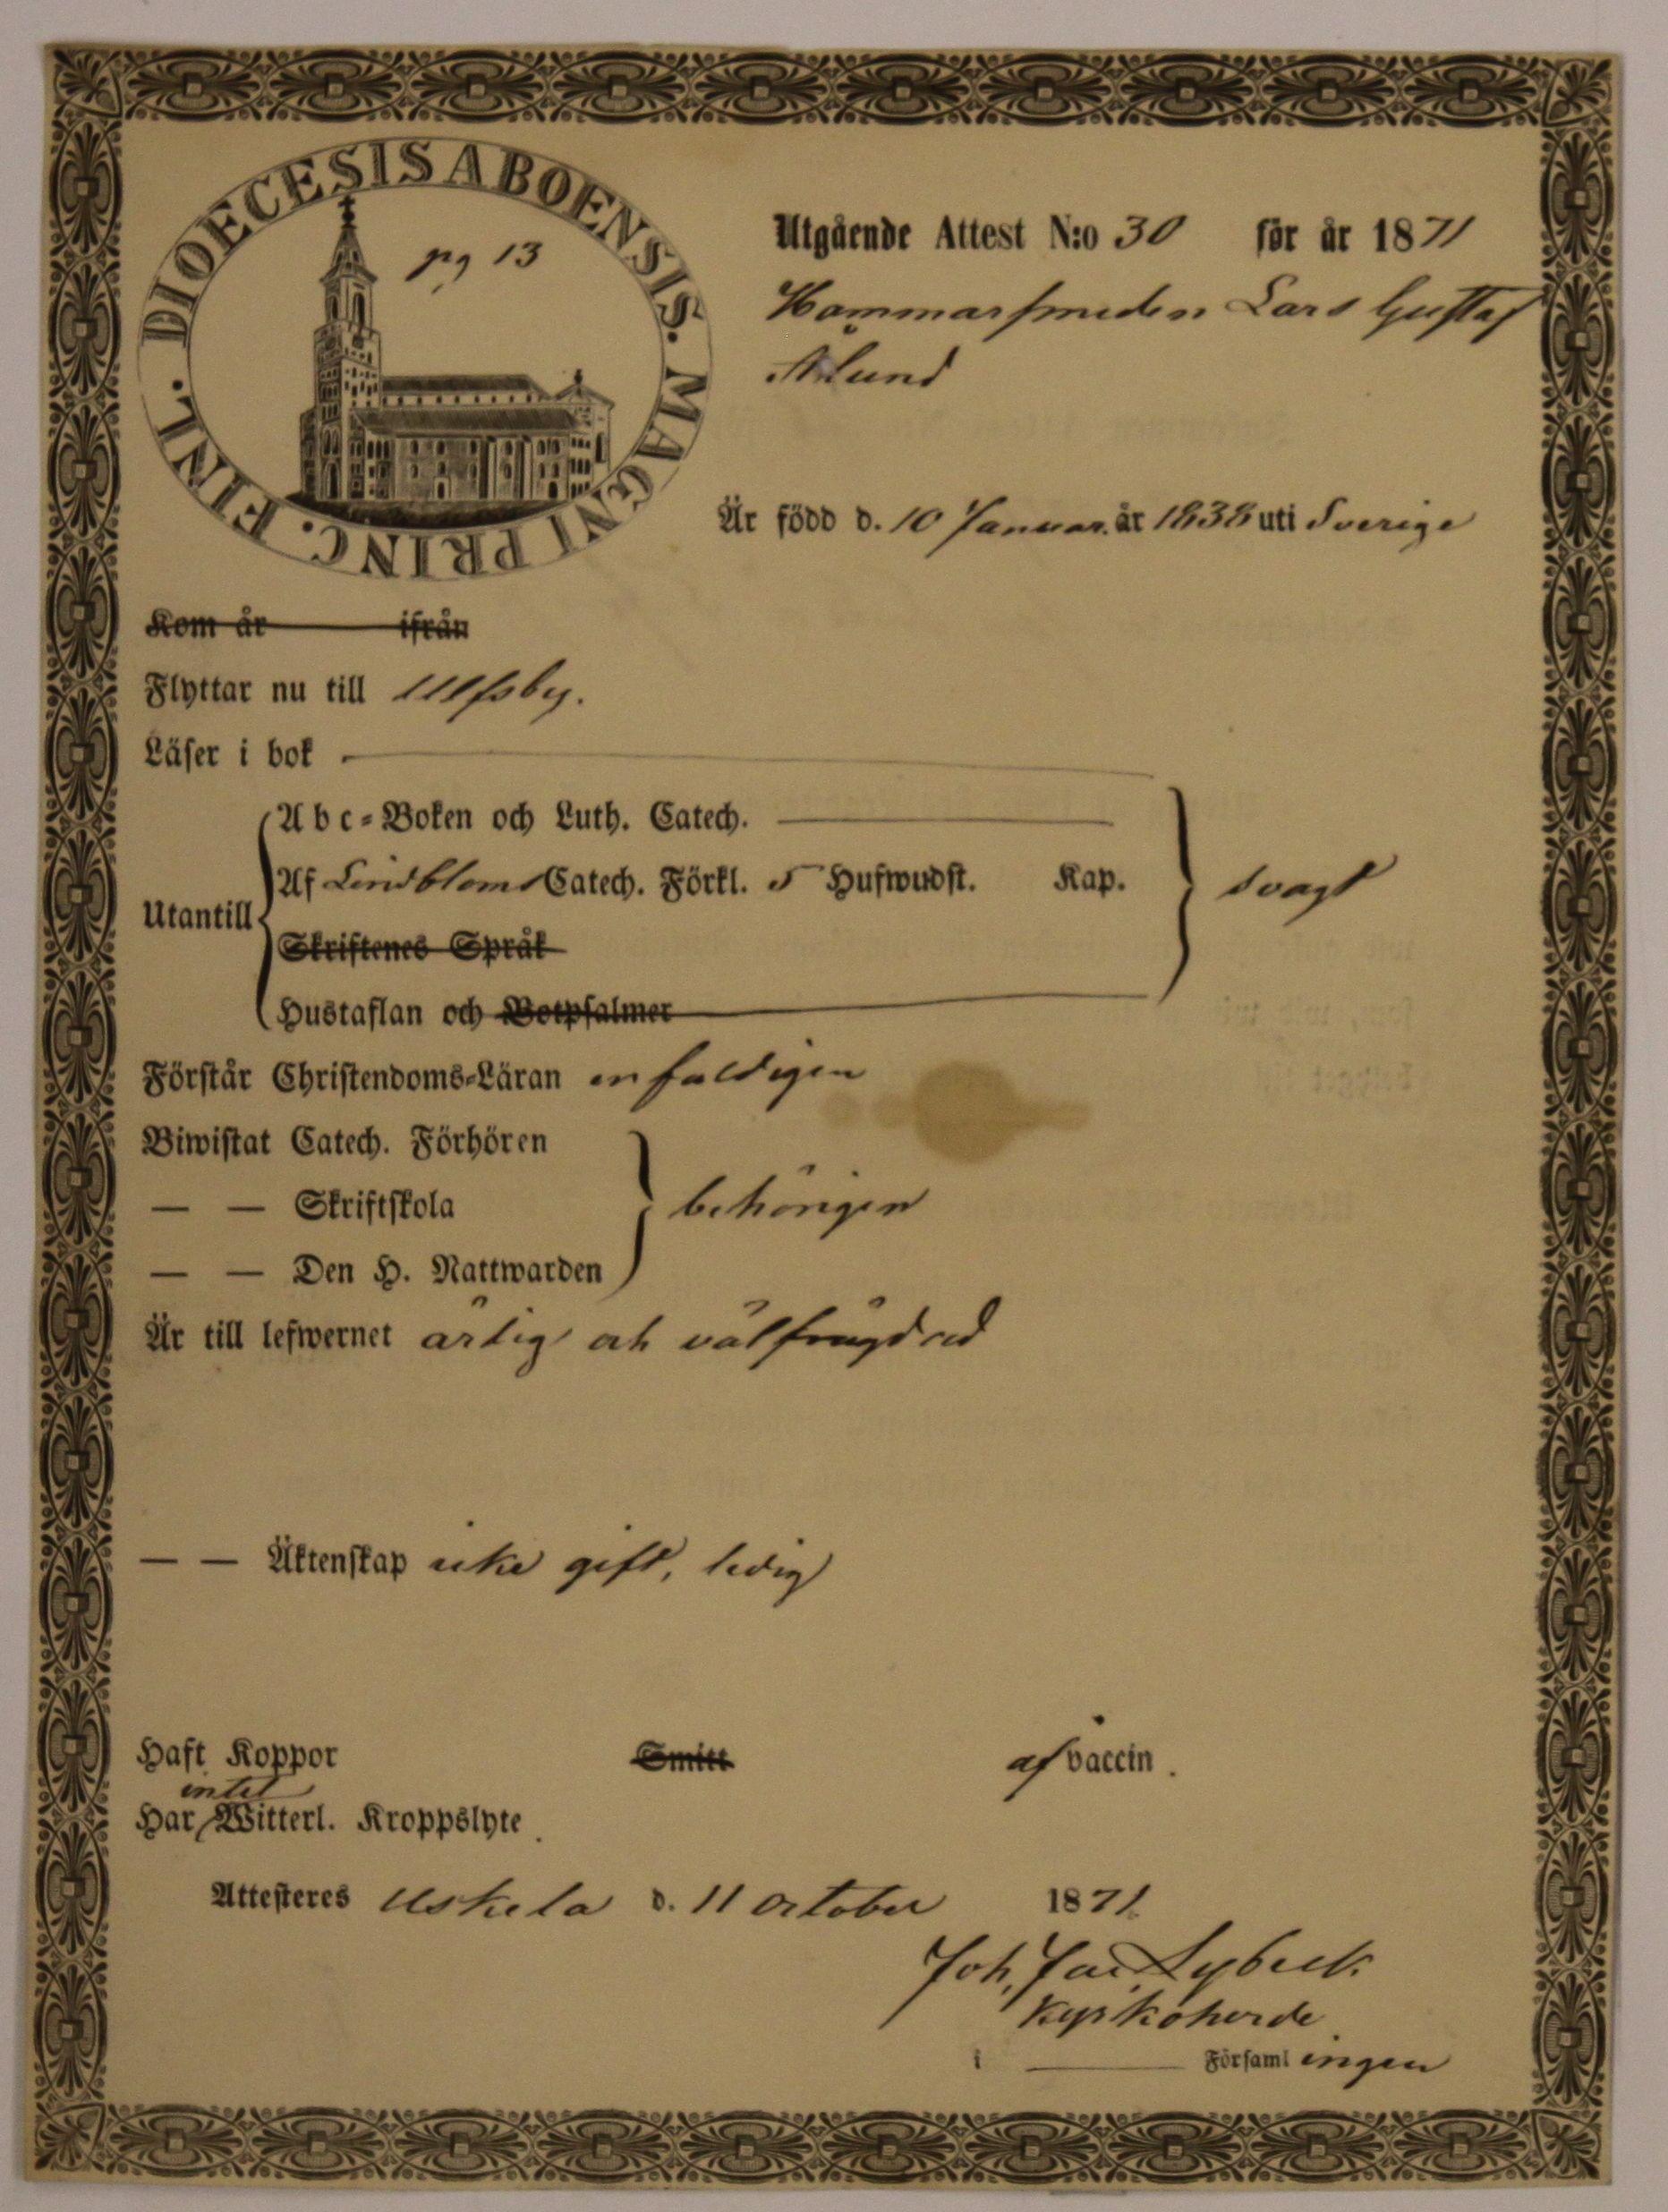 DIOECESIS ABOENSIS. MAGNI PRINC. FINL.
pg 13
Utgående Attest N:o 30 för år 1871
Hammarsmeden Lars Gustaf
Ålund
Är född d. 10 Januar. år 1838 uti Sverige
Kom år ifrån
Flyttar nu till Ulfsby.
Läser i bok
Utantill
Abc-Boken och Luth. Catech.
Af Lindbloms Catech. Förkl. 5 Hufwudst. Kap.
svagt
Skriftenes Språk
Hustaflan och Botpsalmer
Förstår Christendoms-Läran enfaldigen
Biwistat Catech. Förhören
— — Skriftskola
behörigen
— — Den H. Nattwarden
Är till lefwernet ärlig och välfrägdad
— — Äktenskap icke gift, ledig
Haft Koppor Smitt af vaccin.
intet
Har Witterl. Kroppslyte.
Attesteres Uskela d. 11 October 1871.
Joh. Jac. Lybeck.
Kyrkoherde
i Församlingen